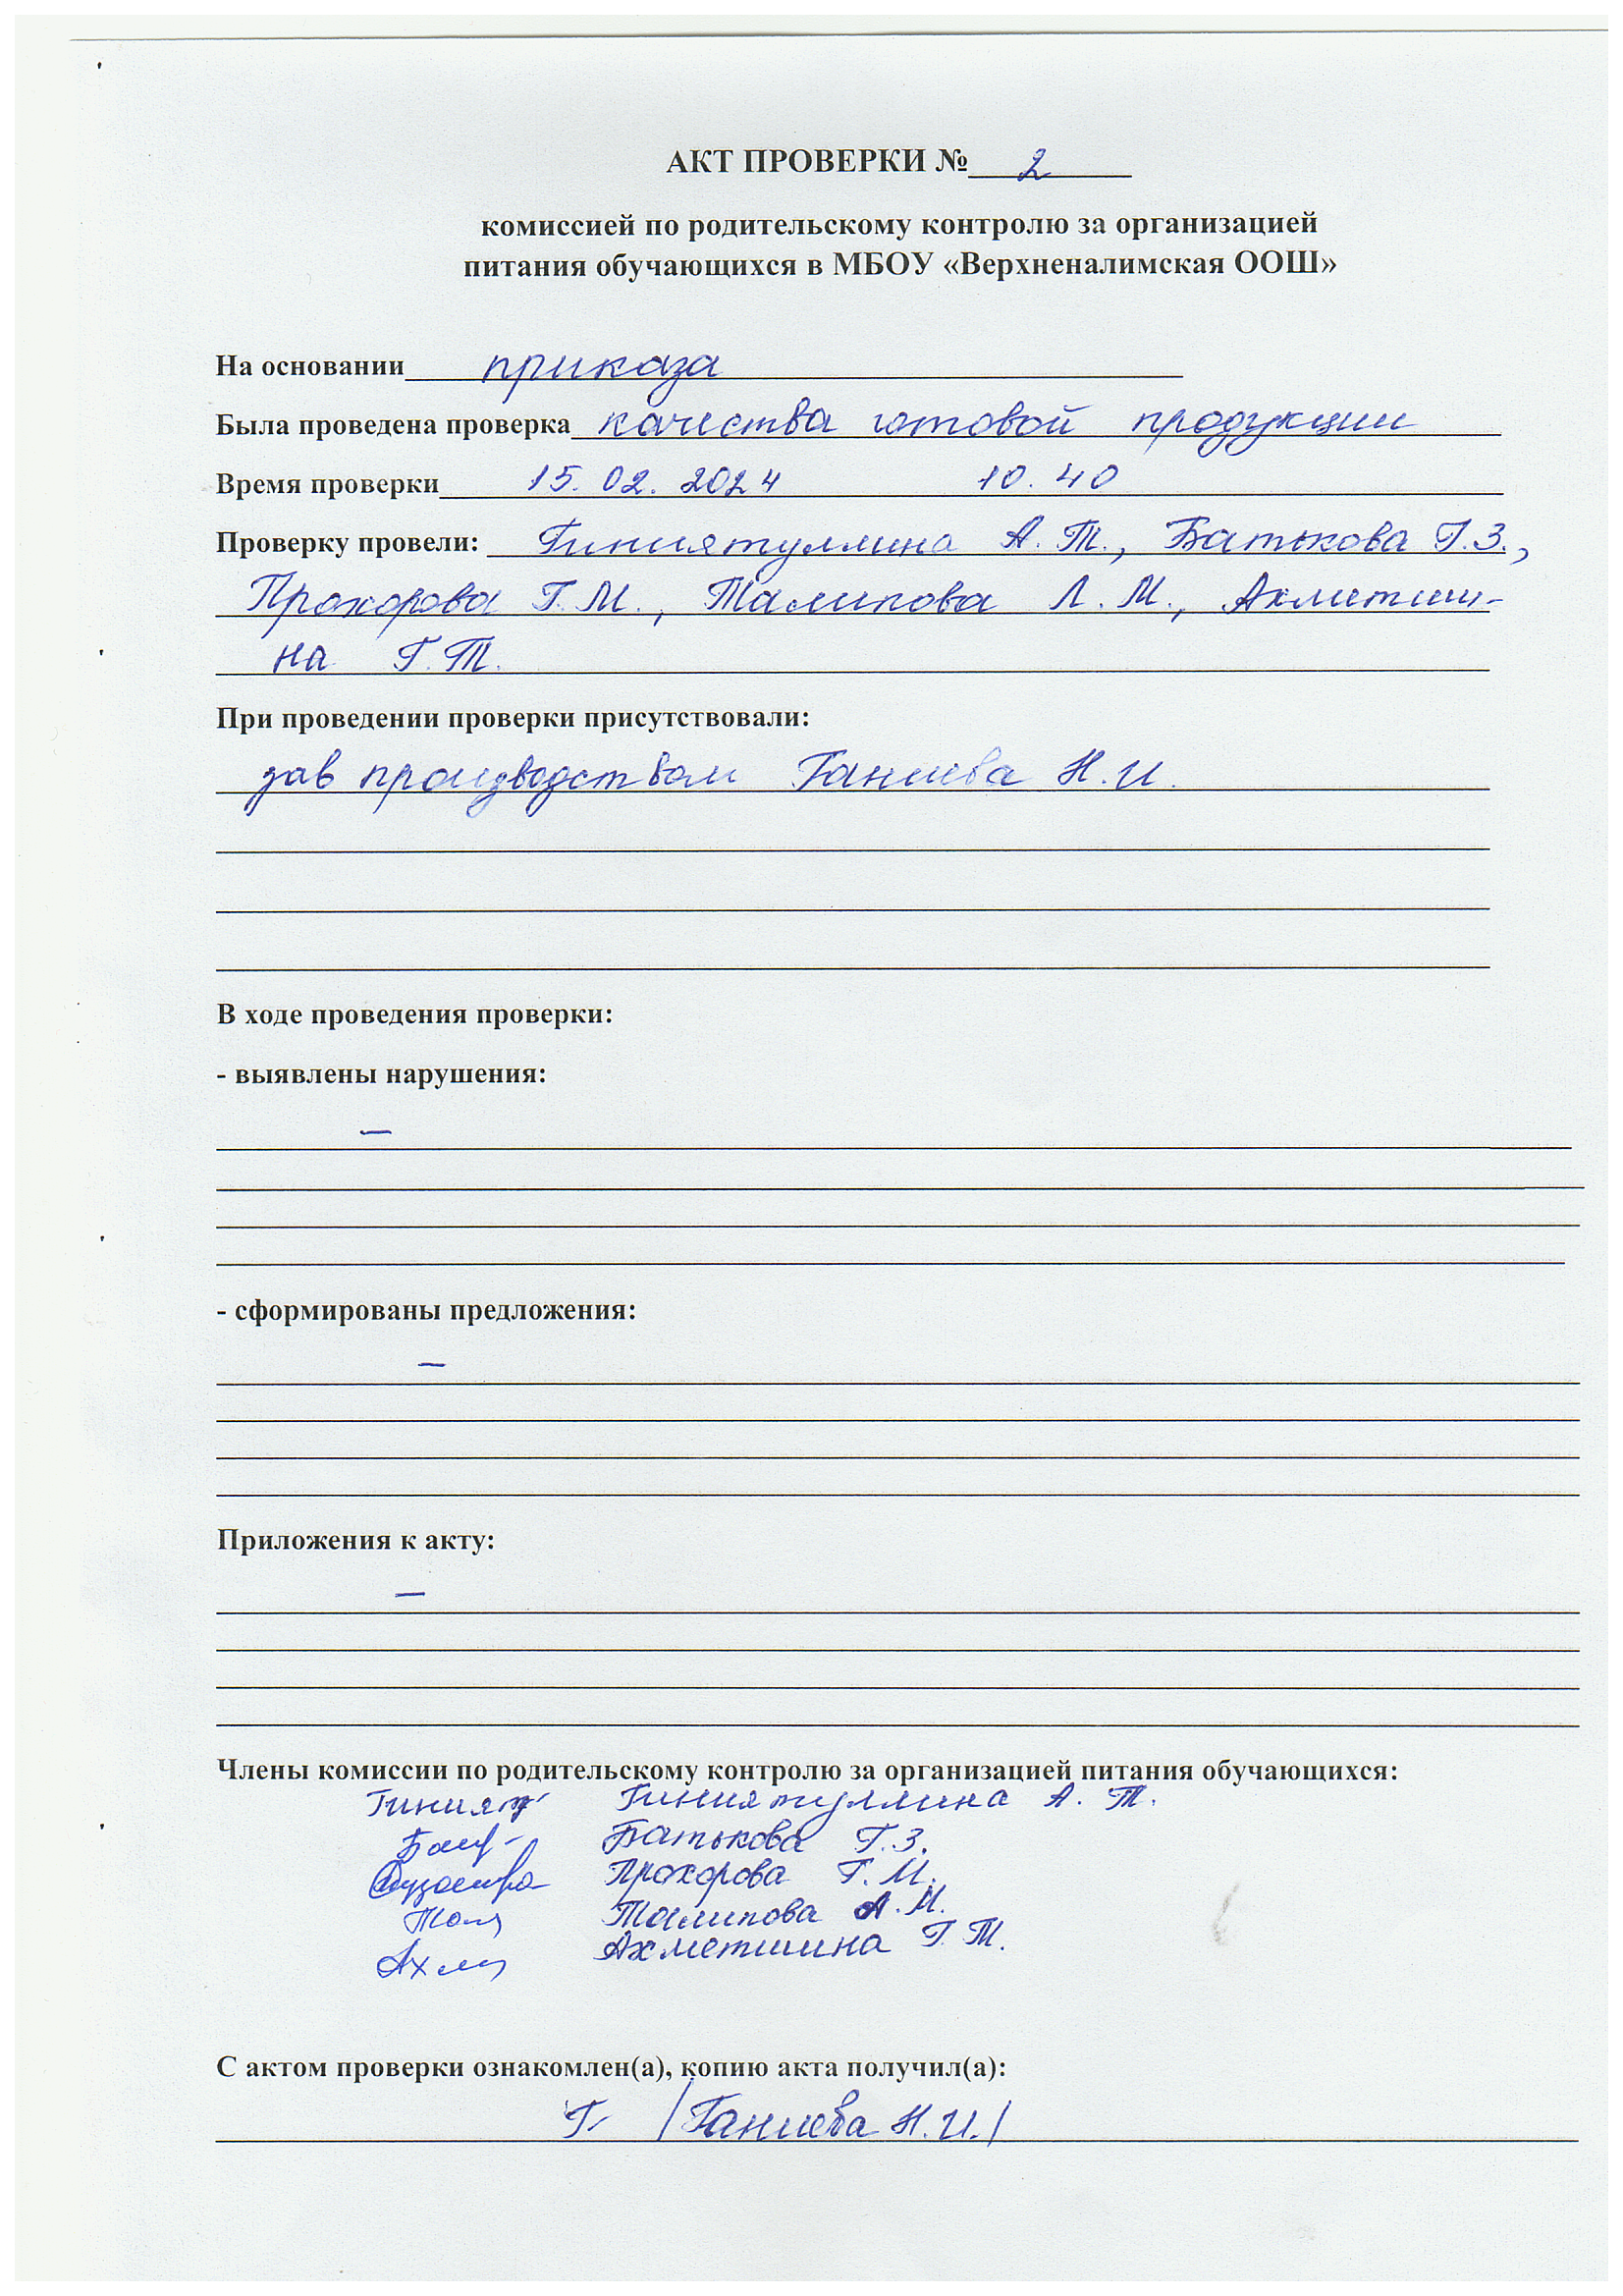 АКТ ПРОВЕРКИ № 2
комиссией по родительскому контролю за организацией
питания обучающихся в МБОУ «Верхненалимская ООШ»
На основании приказа
Была проведена проверка качества готовой продукции
Время проверки 15.02.2024 10.40
Проверку провели: Гиниятуллина А.Т., Батькова Г.З.,
Прохорова Г.М., Талипова Л.М., Ахметши-
на Г.Т.
При проведении проверки присутствовали:
зав производством Ганиева Н.И.
В ходе проведения проверки:
- выявлены нарушения:
–
- сформированы предложения:
–
Приложения к акту:
–
Члены комиссии по родительскому контролю за организацией питания обучающихся:
Гиният Гиниятуллина А.Т.
Батькова Г.З.
Прохорова Г.М.
Талипова Л.М.
Ахметшина Г.Т.
С актом проверки ознакомлен(а), копию акта получил(а):
Г. /Ганиева Н.И./